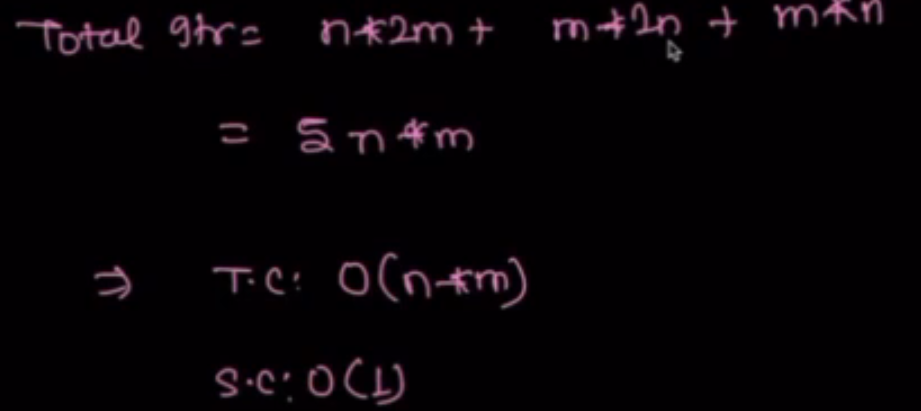 Total Itr= n*2m + m*2n + m*n
= 5 n*m
⇒ T.C: O(n*m)
S.C: O(1)